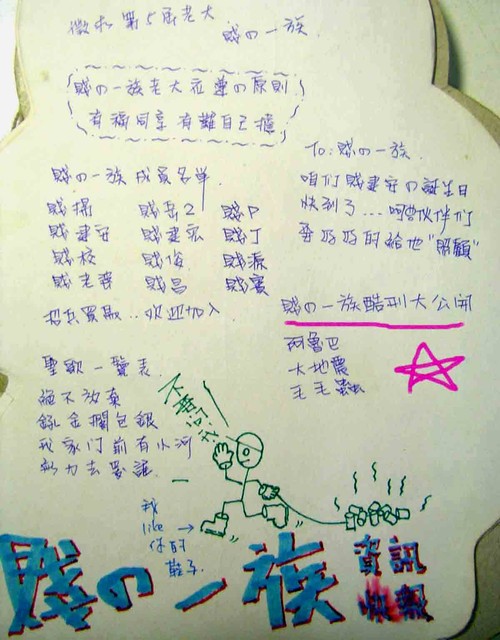 徵求第5届老大
賤の一族
賤の一族老大在蓮の原則
有福同享 有難自己擔
賤の一族 成員名單
賤揚 賤岳2 賤P
賤建安 賤建宏 賤丁
賤校 賤俊 賤源
賤老爺 賤昌 賤賓
招兵買馬...欢迎加入
To: 賤の一族
咱们 賤建安の誕生日
快到了...呵夥伙伴们
要好好的給他"照顧"
賤の一族酷刑大公開
阿魯巴
大地震
毛毛蟲
聖歌一覽表
絕不放棄
鑲金擱包銀
我家门前有小河
努力去愛誰
不要污我
我
like
你的
鞋子
賤の一族
資訊
快報